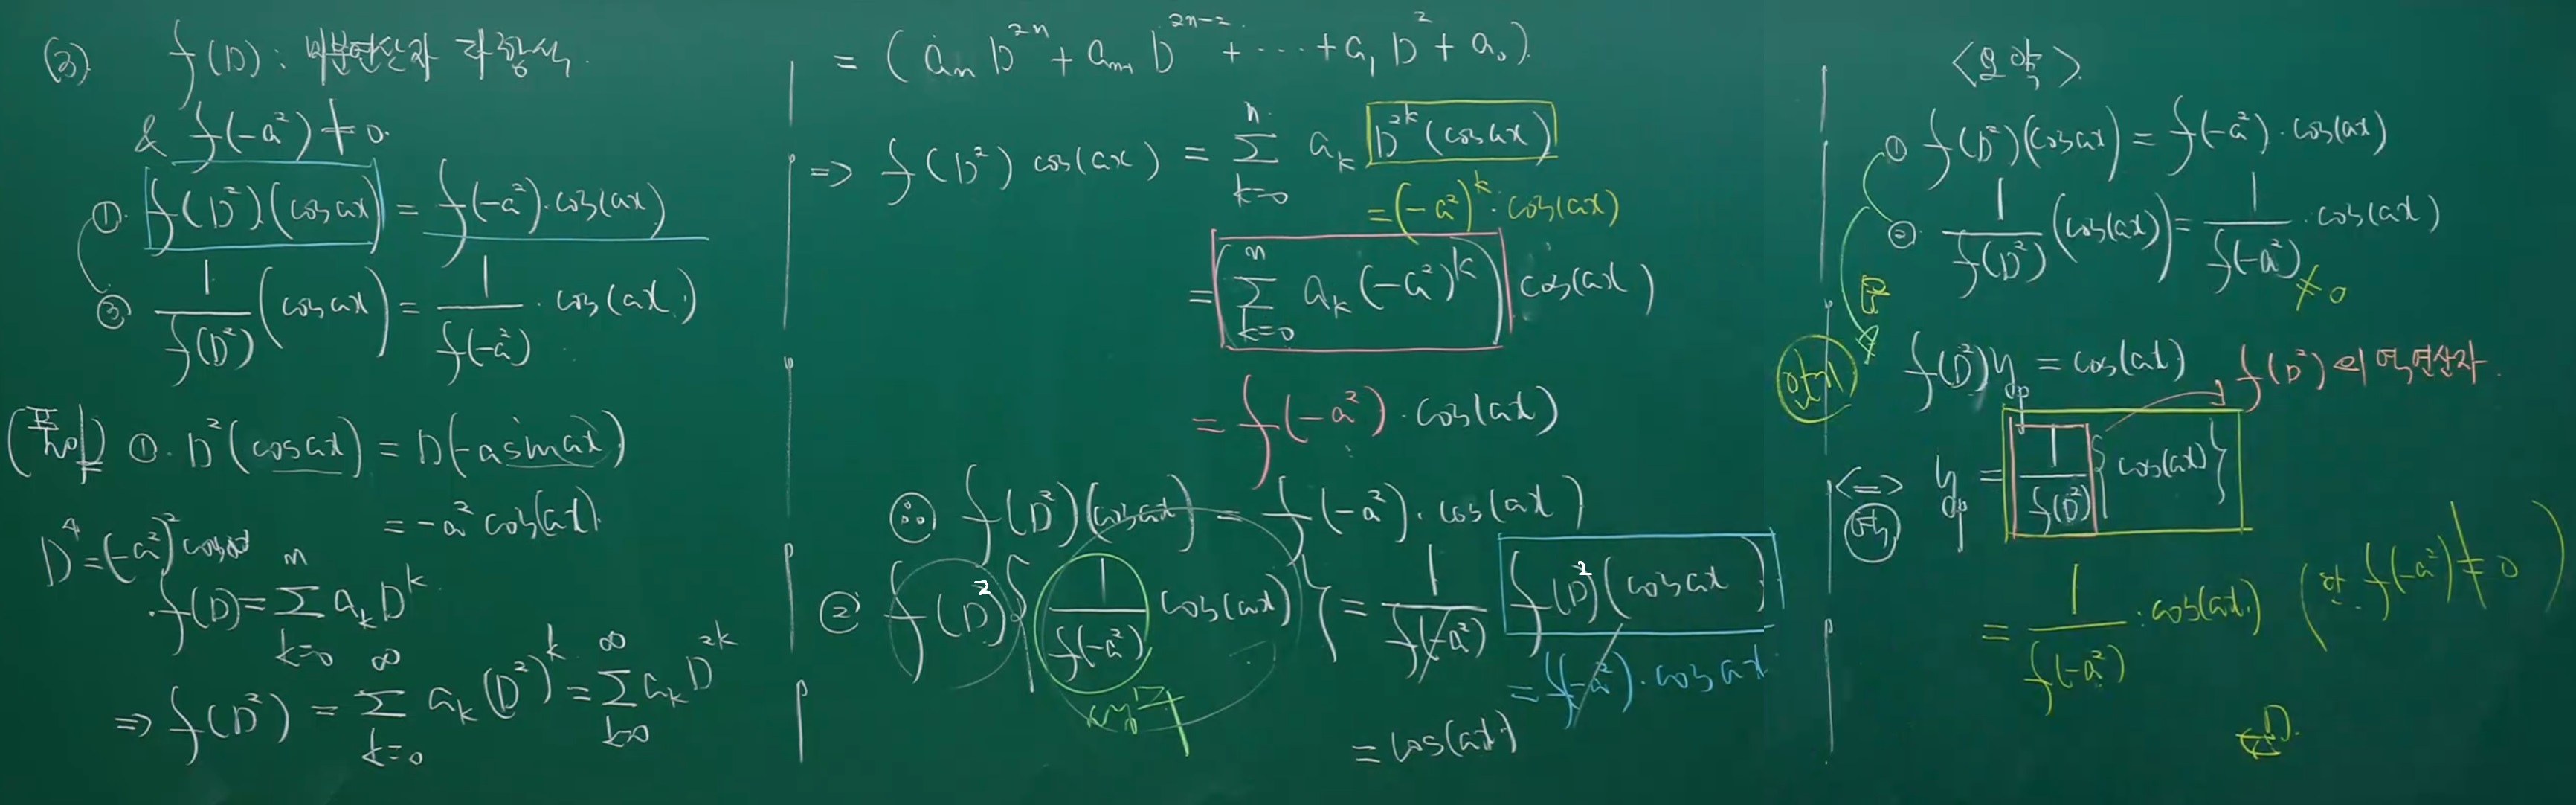 (3) f(D) : 미분연산자 다항식.
& f(-a²) ≠ 0.
①. f(D²)(cosax) = f(-a²)·cos(ax)
② 1/f(D²) (cosax) = 1/f(-a²) · cos(ax).
①. D²(cosax) = D(-asinax)
= -a² cos(ax).
D⁴ = (-a²)² cosax
f(D) = Σ_{k=0}^{n} a_k D^k.
⇒ f(D²) = Σ_{k=0}^{∞} a_k (D²)^k = Σ_{k=0}^{∞} a_k D^{2k}
= (a_n D^{2n} + a_{n-1} D^{2n-2} + ⋯ + a₁ D² + a₀).
⇒ f(D²) cos(ax) = Σ_{k=0}^{n} a_k D^{2k}(cosax)
= (-a²)^k · cos(ax)
= (Σ_{k=0}^{n} a_k (-a²)^k) cos(ax)
= f(-a²) · cos(ax)
∴ f(D²)(cosax) = f(-a²). cos(ax)
② f(D²){ 1/f(-a²) cos(ax) } = 1/f(-a²) f(D²)(cosax)
= f(-a²). cosax.
= cos(ax)
<요약>
① f(D²)(cosax) = f(-a²). cos(ax)
②. 1/f(D²) (cos(ax)) = 1/f(-a²) · cos(ax)
≠ 0
f(D²)y_p = cos(ax)
f(D²)의 역연산자.
⇔ y_p = 1/f(D²) { cos(ax) }
= 1/f(-a²) · cos(ax). (단. f(-a²) ≠ 0)